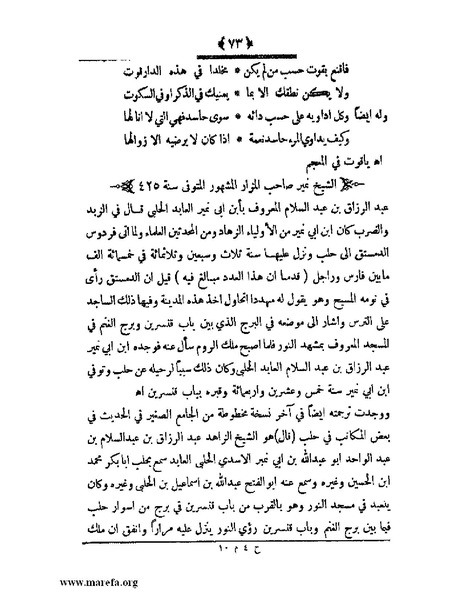 ﴿ ٧٣ ﴾
فاقنع بقوت حسب من لم يكن * مخلدا في هذه الدار قوت
ولا يكن نطقك الا بما * يعنيك في الذكر او في السكوت
وله ايضاً وكل اداويه على حسب دائه * سوى حاسد فهي التي لا انالها
وكيف يداوي المرء حاسد نعمة * اذا كان لا يرضيه الا زوالها
اه ياقوت في المعجم
الشيخ نمير صاحب المزار المشهور المتوفى سنة ٤٢٥
عبد الرزاق بن عبد السلام المعروف بأبن ابى نمير العابد الحلبى قال في الزبد
والضرب كان ابن ابي نمير من الأولياء الزهاد ومن المحدثين العلماء ولما اتى فردوس
الدمستق الى حلب ونزل عليها سنة ثلاث وسبعين وثلاثمائة في خمسمائة الف
مابين فارس وراجل ( قدمنا ان هذا العدد مبالغ فيه ) قيل ان الدمستق رأى
في نومه المسيح وهو يقول له مهددا اتحاول اخذ هذه المدينة وفيها ذلك الساجد
على الترس واشار الى موضعه في البرج الذي بين باب قنسرين وبرج الغنم في
المسجد المعروف بمشهد النور فلما اصبح ملك الروم سأل عنه فوجده ابن ابي نمير
عبد الرزاق بن عبد السلام العابد الحلبى وكان ذلك سبباً لرحيله عن حلب وتوفي
ابن ابي نمير سنة خمس وعشرين واربعمائة وقبره بباب قنسرين اه
ووجدت ترجمته ايضاً في آخر نسخة مخطوطة من الجامع الصغير في الحديث في
بعض المكاتب في حلب (قال) هو الشيخ الزاهد عبد الرزاق بن عبدالسلام بن
عبد الواحد ابو عبدالله بن ابي نمير الاسدي الحلبى العابد سمع بحلب ابابكر محمد
ابن الحسين وغيره وسمع عنه ابو الفتح عبدالله بن اسماعيل بن الحلبى وغيره وكان
يتعبد في مسجد النور وهو بالقرب من باب قنسرين في برج من اسوار حلب
فيما بين برج الغنم وباب قنسرين رؤي النور ينزل عليه مراراً واتفق ان ملك
ح ٤ م ١٠
www.marefa.org